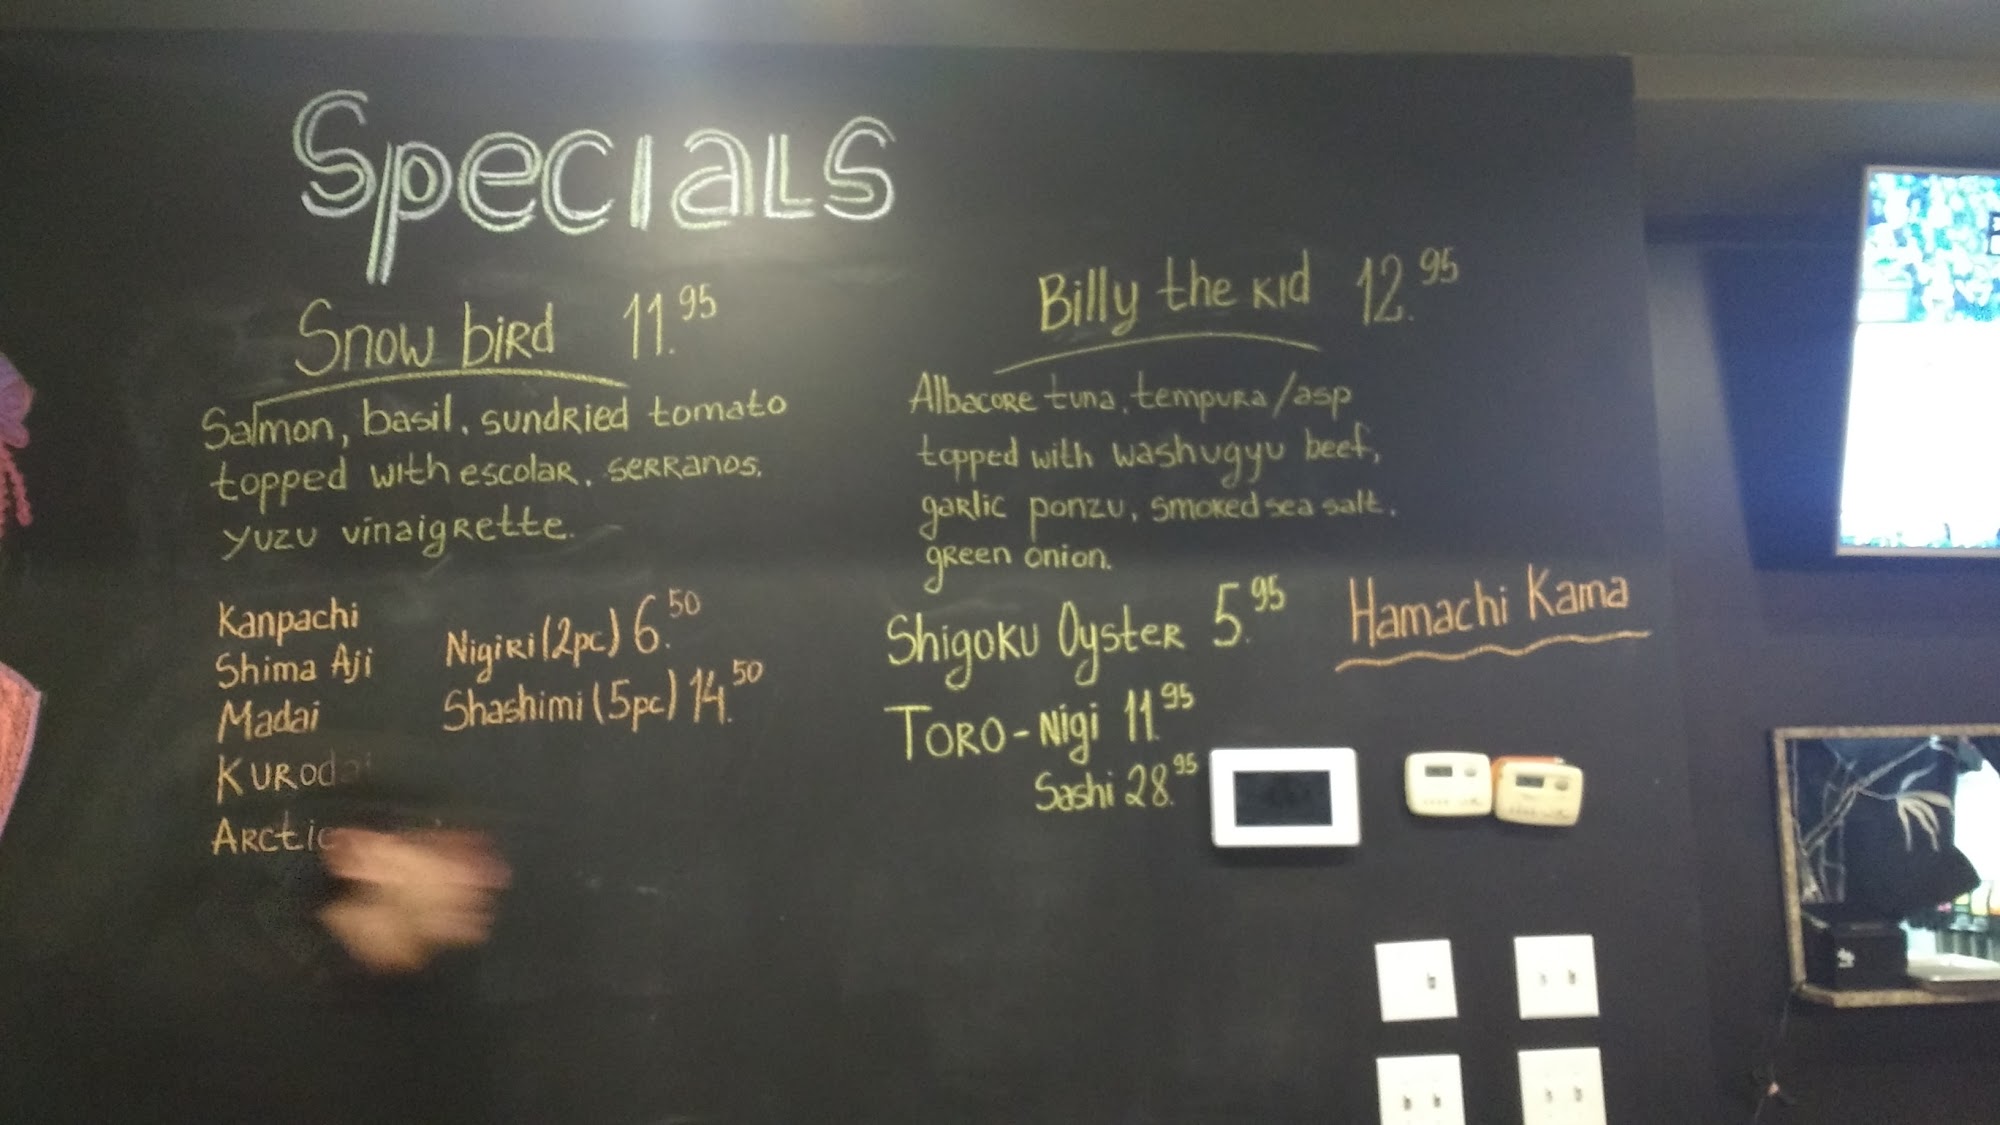 Specials
Snow bird 11.95
Salmon, basil, sundried tomato
topped with escolar, serranos,
yuzu vinaigrette.
Kanpachi
Shima Aji
Madai
Arctic
Nigiri (2pc) 6.50
Shashimi (5pc) 14.50
Billy the Kid 12.95
Albacore tuna, tempura/asp
topped with washugyu beef,
garlic ponzu, smoked sea salt,
green onion.
Shigoku Oyster 5.95
Hamachi Kama
Toro - Nigi 11.95
Sashi 28.95